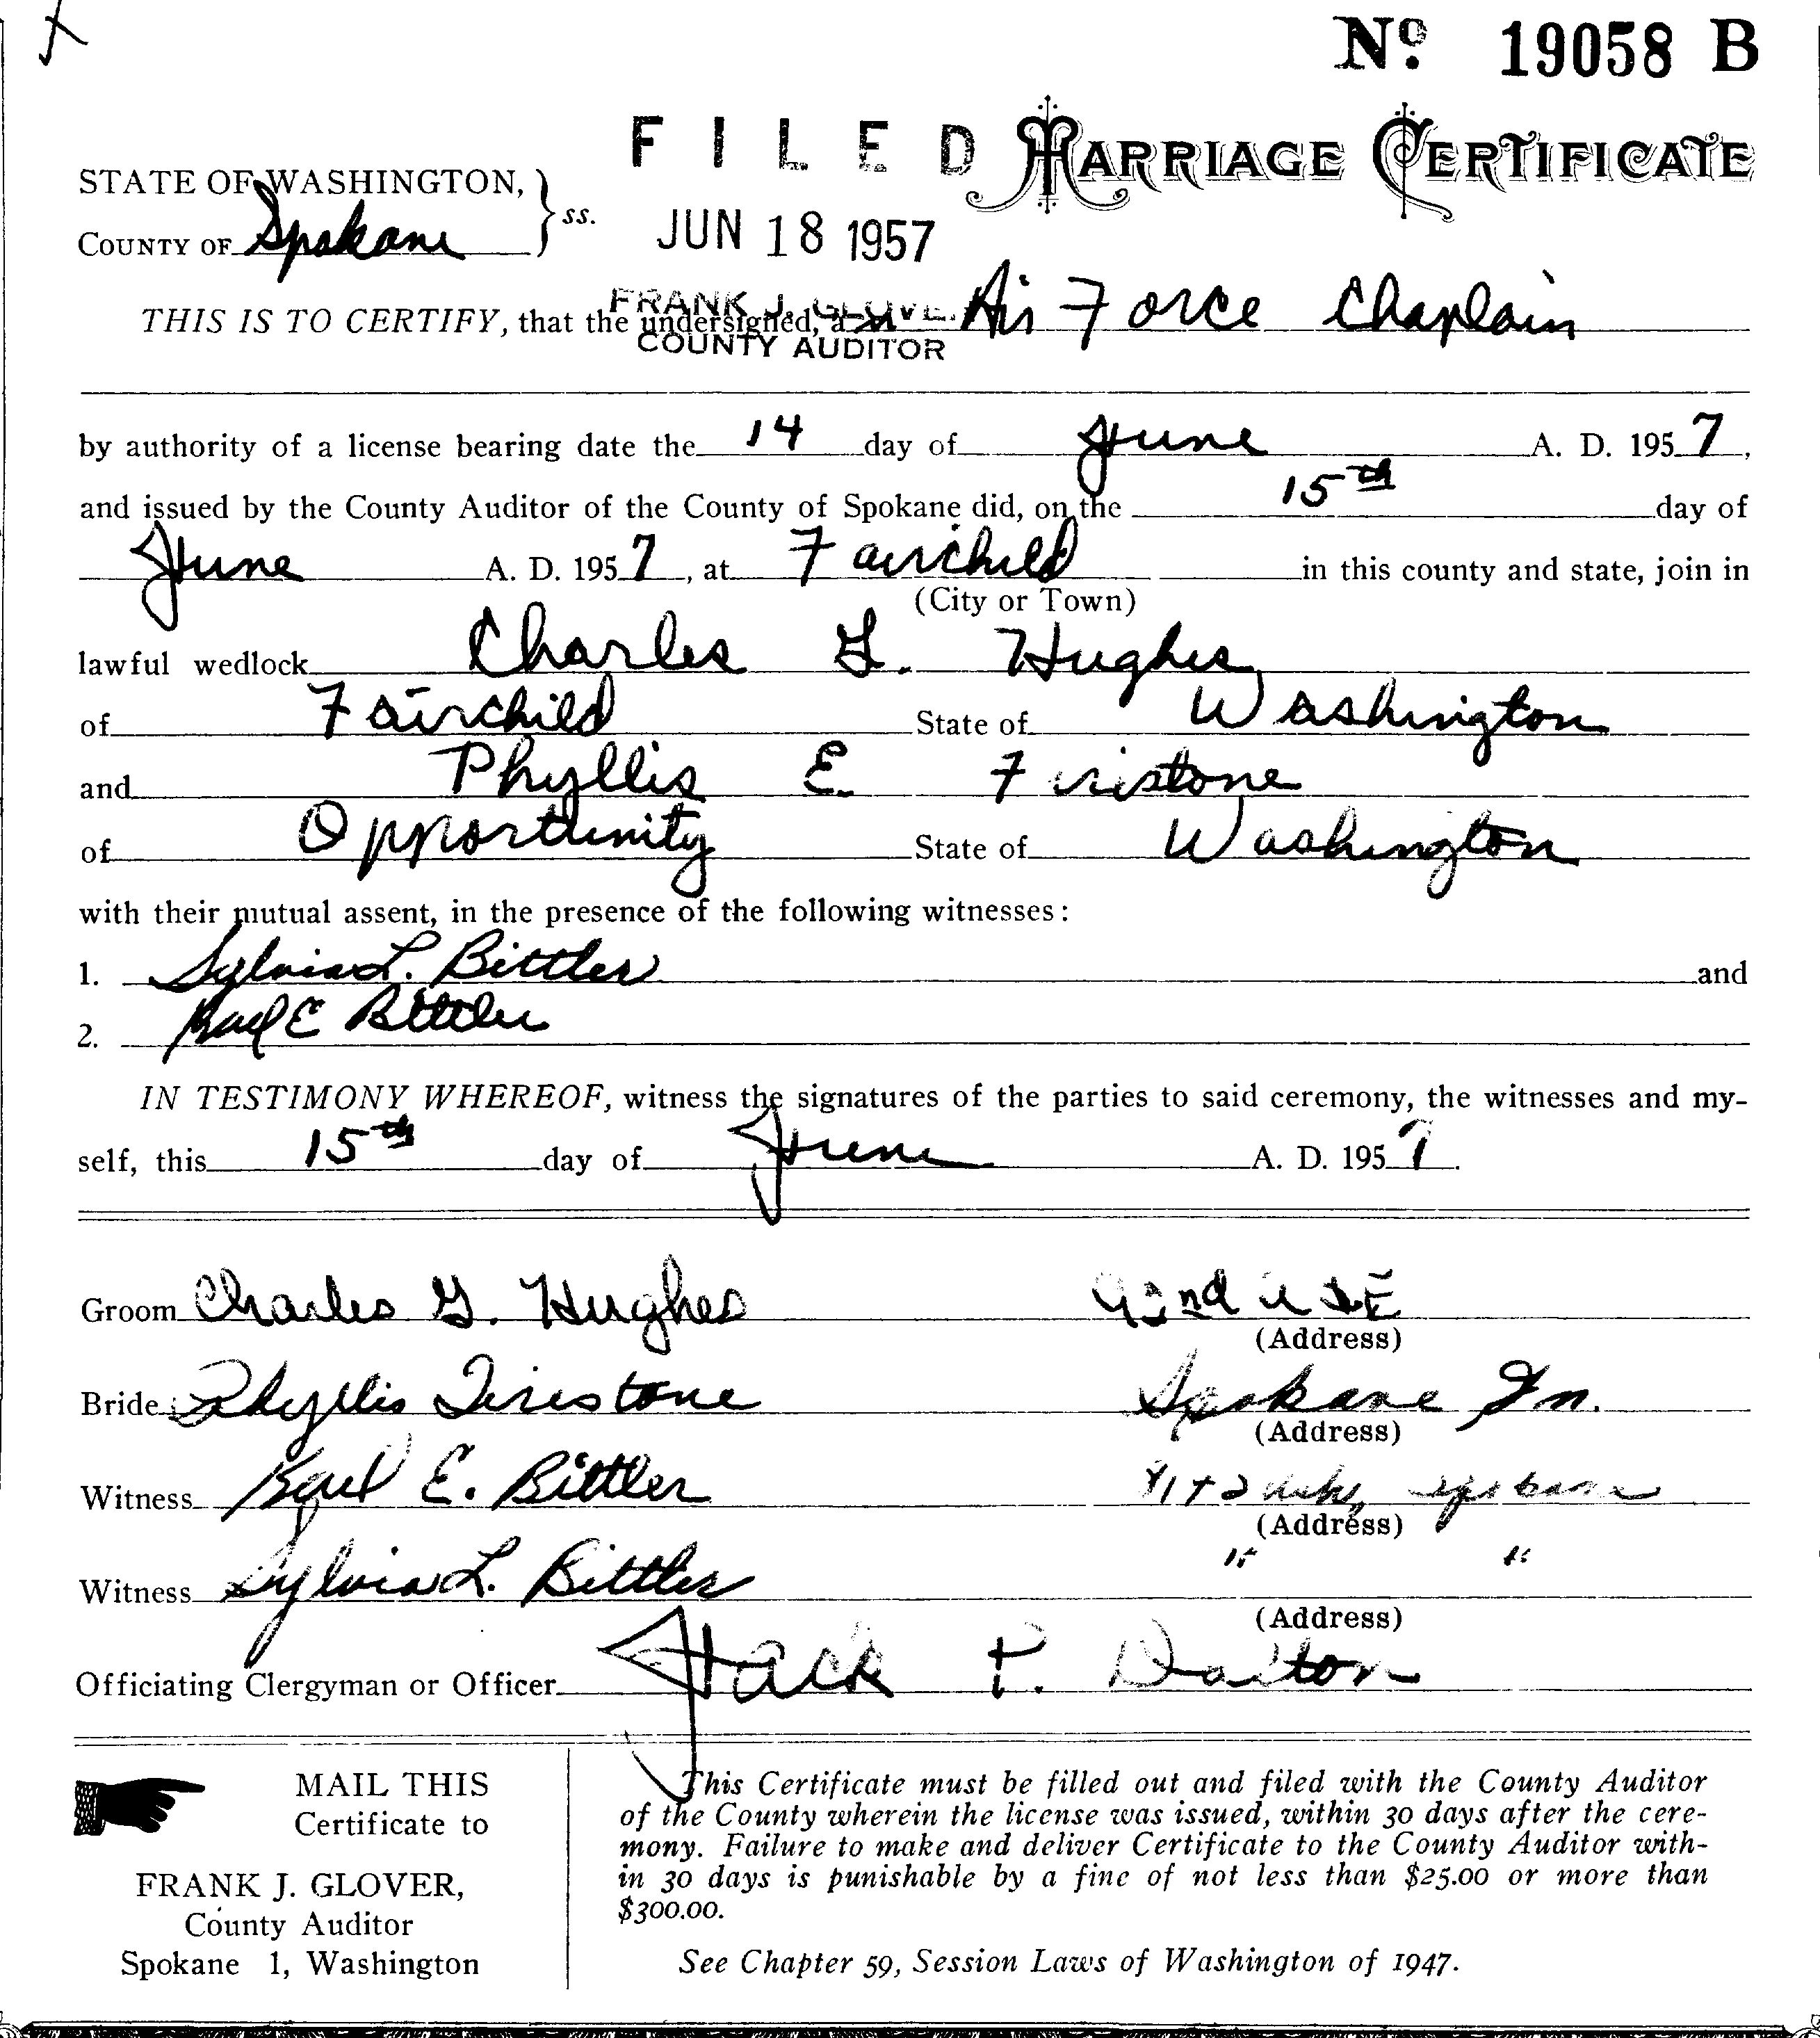 No. 19058 B
FILED MARRIAGE CERTIFICATE
STATE OF WASHINGTON, } ss.
COUNTY OF Spokane
JUN 18 1957
FRANK J. GLOVE
COUNTY AUDITOR
THIS IS TO CERTIFY, that the undersigned, an Air Force Chaplain
by authority of a license bearing date the 14 day of June A. D. 1957,
and issued by the County Auditor of the County of Spokane did, on the 15th day of
June A. D. 1957, at Fairchild in this county and state, join in
(City or Town)
lawful wedlock Charles G. Hughes
of Fairchild State of Washington
and Phyllis E. Firistone
of Opportunity State of Washington
with their mutual assent, in the presence of the following witnesses:
1. Sylvia L. Bittler and
2. Karl E Bittler
IN TESTIMONY WHEREOF, witness the signatures of the parties to said ceremony, the witnesses and my-
self, this 15th day of June A. D. 1957.
Groom Charles G. Hughes 92nd
(Address)
Bride Phyllis Firestone Spokane
(Address)
Witness Karl E. Bittler Spokane
(Address)
Witness Sylvia L. Bittler " "
(Address)
Officiating Clergyman or Officer Jack P. Dalton
MAIL THIS
Certificate to
FRANK J. GLOVER,
County Auditor
Spokane 1, Washington
This Certificate must be filled out and filed with the County Auditor
of the County wherein the license was issued, within 30 days after the cere-
mony. Failure to make and deliver Certificate to the County Auditor with-
in 30 days is punishable by a fine of not less than $25.00 or more than
$300.00.
See Chapter 59, Session Laws of Washington of 1947.